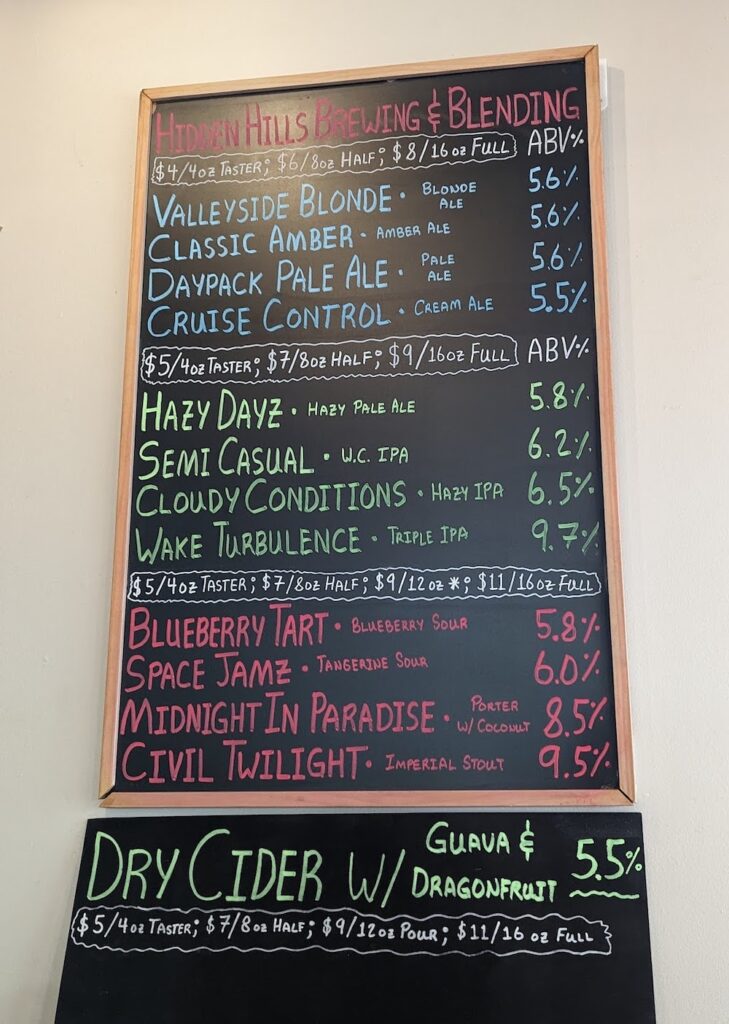 HIDDEN HILLS BREWING & BLENDING
$4/4oz TASTER; $6/8oz HALF; $8/16oz FULL ABV%
VALLEYSIDE BLONDE · BLONDE ALE 5.6%
CLASSIC AMBER · AMBER ALE 5.6%
DAYPACK PALE ALE · PALE ALE 5.6%
CRUISE CONTROL · CREAM ALE 5.5%
$5/4oz TASTER; $7/8oz HALF; $9/16oz FULL ABV%
HAZY DAYZ · HAZY PALE ALE 5.8%
SEMI CASUAL · W.C. IPA 6.2%
CLOUDY CONDITIONS · HAZY IPA 6.5%
WAKE TURBULENCE · TRIPLE IPA 9.7%
$5/4oz TASTER; $7/8oz HALF; $9/12oz *; $11/16oz FULL
BLUEBERRY TART · BLUEBERRY SOUR 5.8%
SPACE JAMZ · TANGERINE SOUR 6.0%
MIDNIGHT IN PARADISE · PORTER W/ COCONUT 8.5%
CIVIL TWILIGHT · IMPERIAL STOUT 9.5%
DRY CIDER W/ GUAVA & DRAGONFRUIT 5.5%
$5/4oz TASTER; $7/8oz HALF; $9/12oz POUR; $11/16 oz FULL